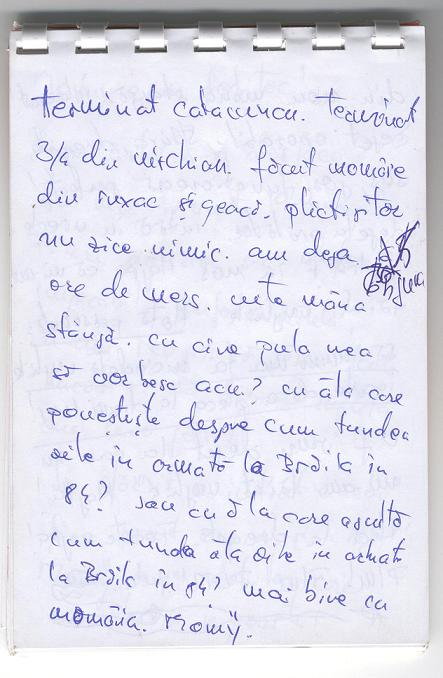 terminat catacuncu. terminat
3/4 din nischian. făcut momâie
din ruxac și geacă. plictisitor
nu zice nimic. am deja
ore de mers. mâna
stângă. cu cine pula mea
să vorbesc acu? cu ăla care
povestește despre cum tundea
oile în armată la Brăila în
84? sau cu ăla care ascultă
cum tundea ăla oile în armată
la Brăila în 84? mai bine cu
momâia.